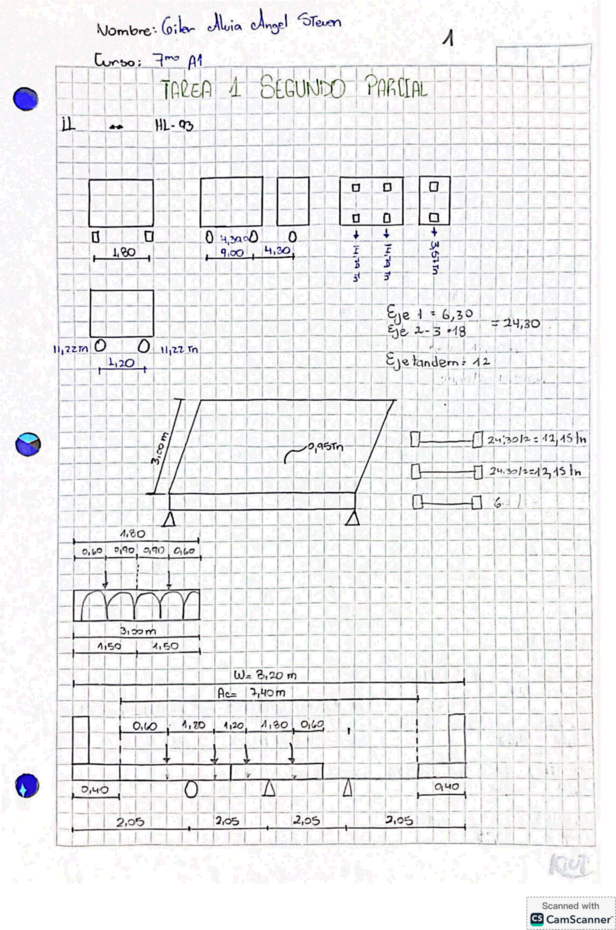 Nombre: Giler Alvia Angel Steven
1
Curso: 7mo A1
TAREA 1 SEGUNDO PARCIAL
LL HL-93
1,80
4,30
9,00
4,30
3,57tn
Eje 1 = 6,30
Eje 2-3 * 18
= 24,30
11,22Tn
11,22 Tn
1,20
Eje tandem = 12
3,00m
0,95Tn
24.30/2 = 12,15 tn
24.30/2=12,15 tn
6
1,80
0,60 0,90 0,90 0,60
3,00m
1,50 1,50
W= 8,20 m
Ac= 7,40m
0,60 1,80 1,20 1,80 0,60
0,40
0,40
2,05 2,05 2,05 2,05
Scanned with
CS CamScanner